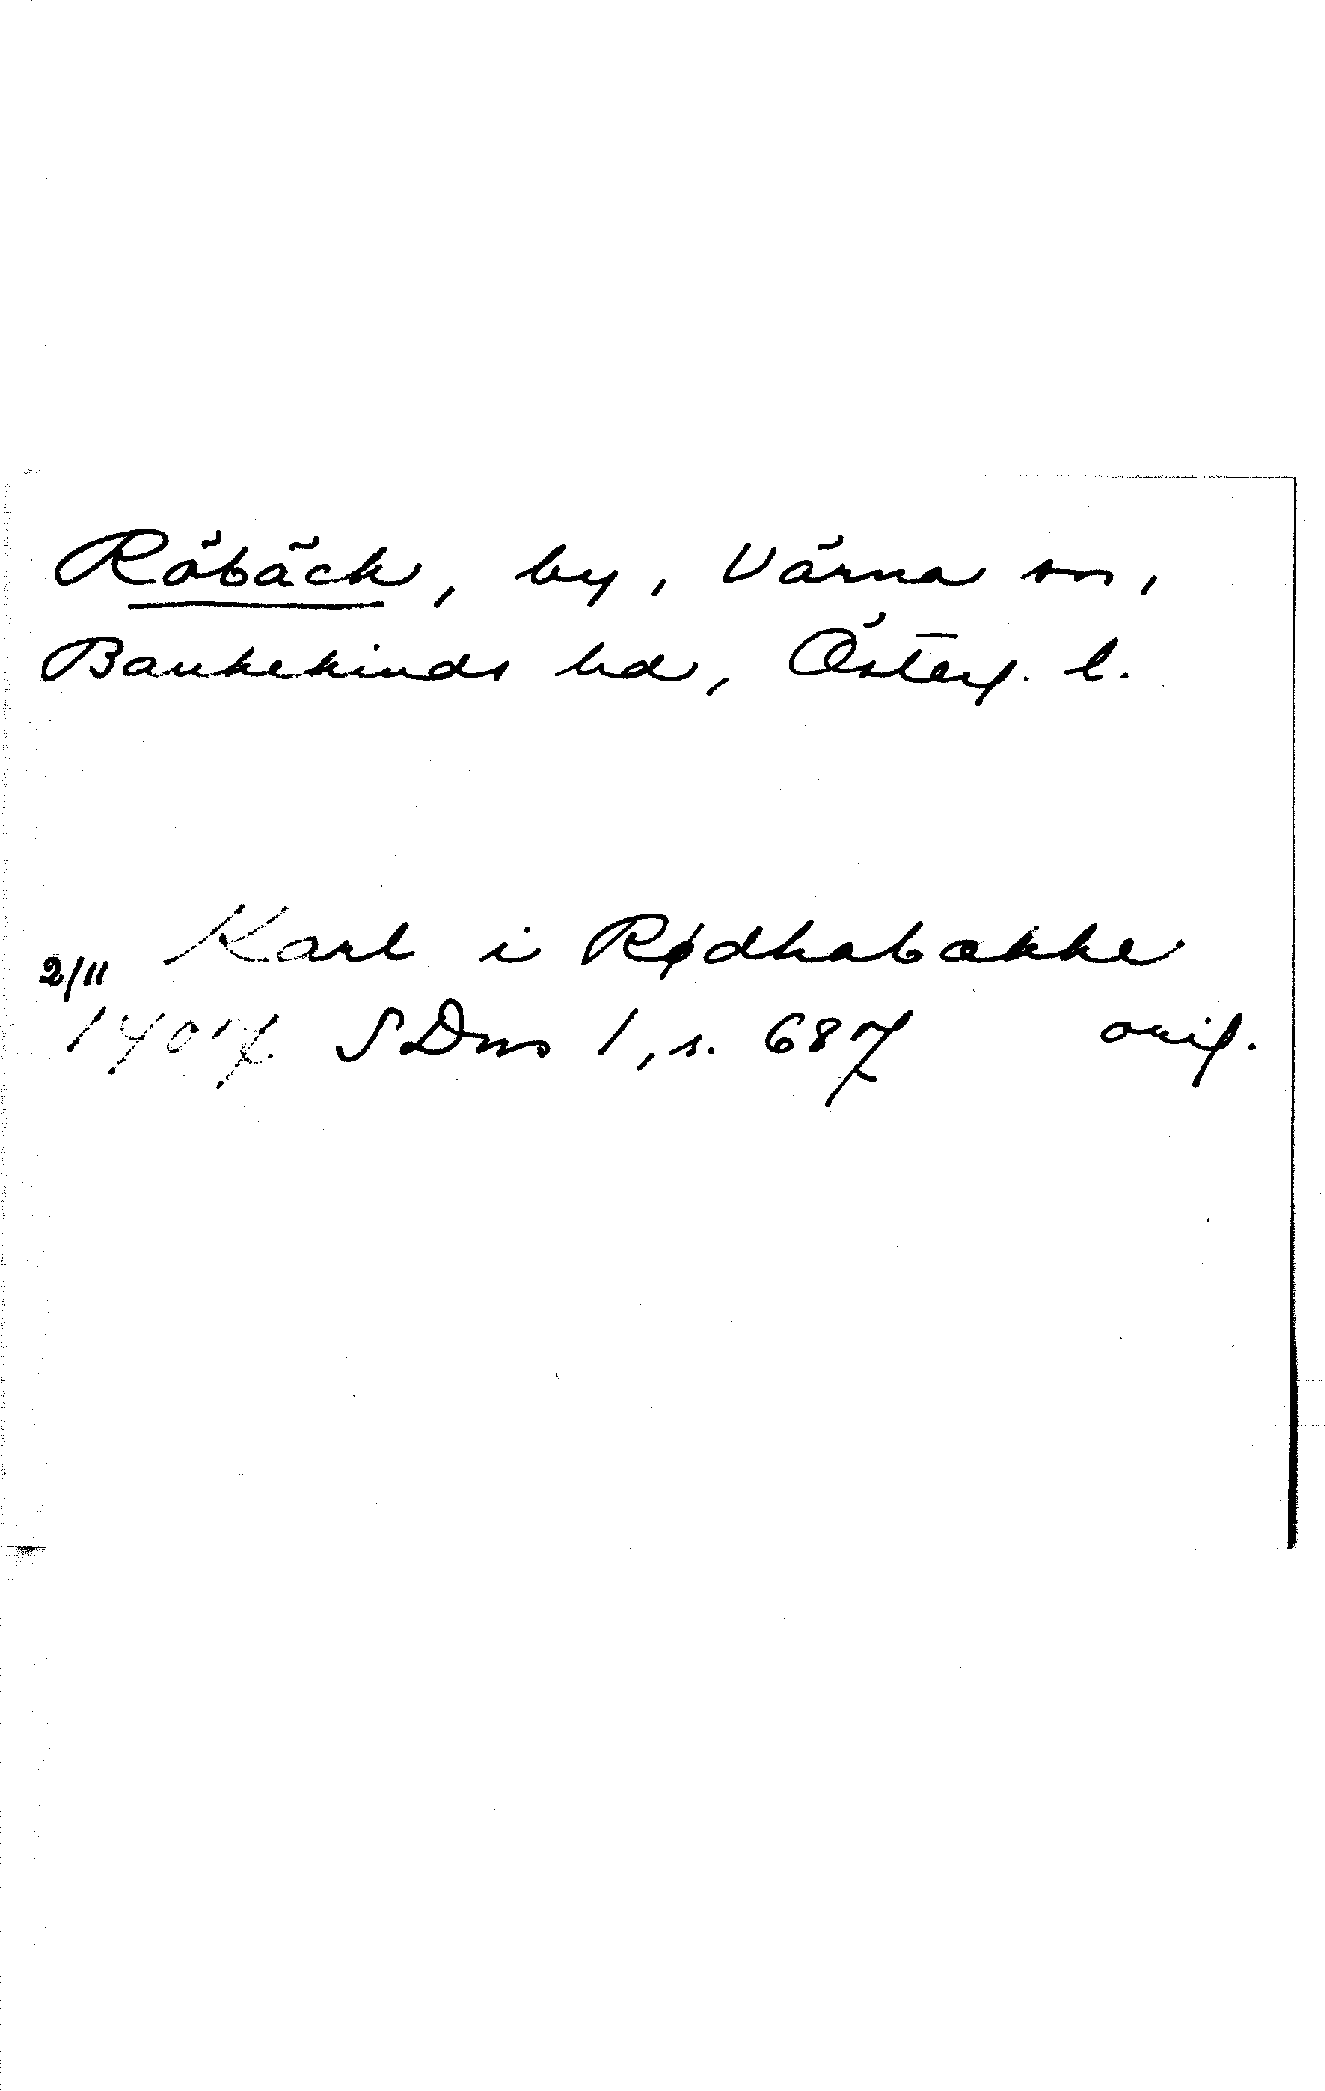 Röbäck, by, Värna sn,
Bankekinds hd, Österg. l.
Karl i Rødhabække
2/11
1407 SDns 1, s. 687 orig.